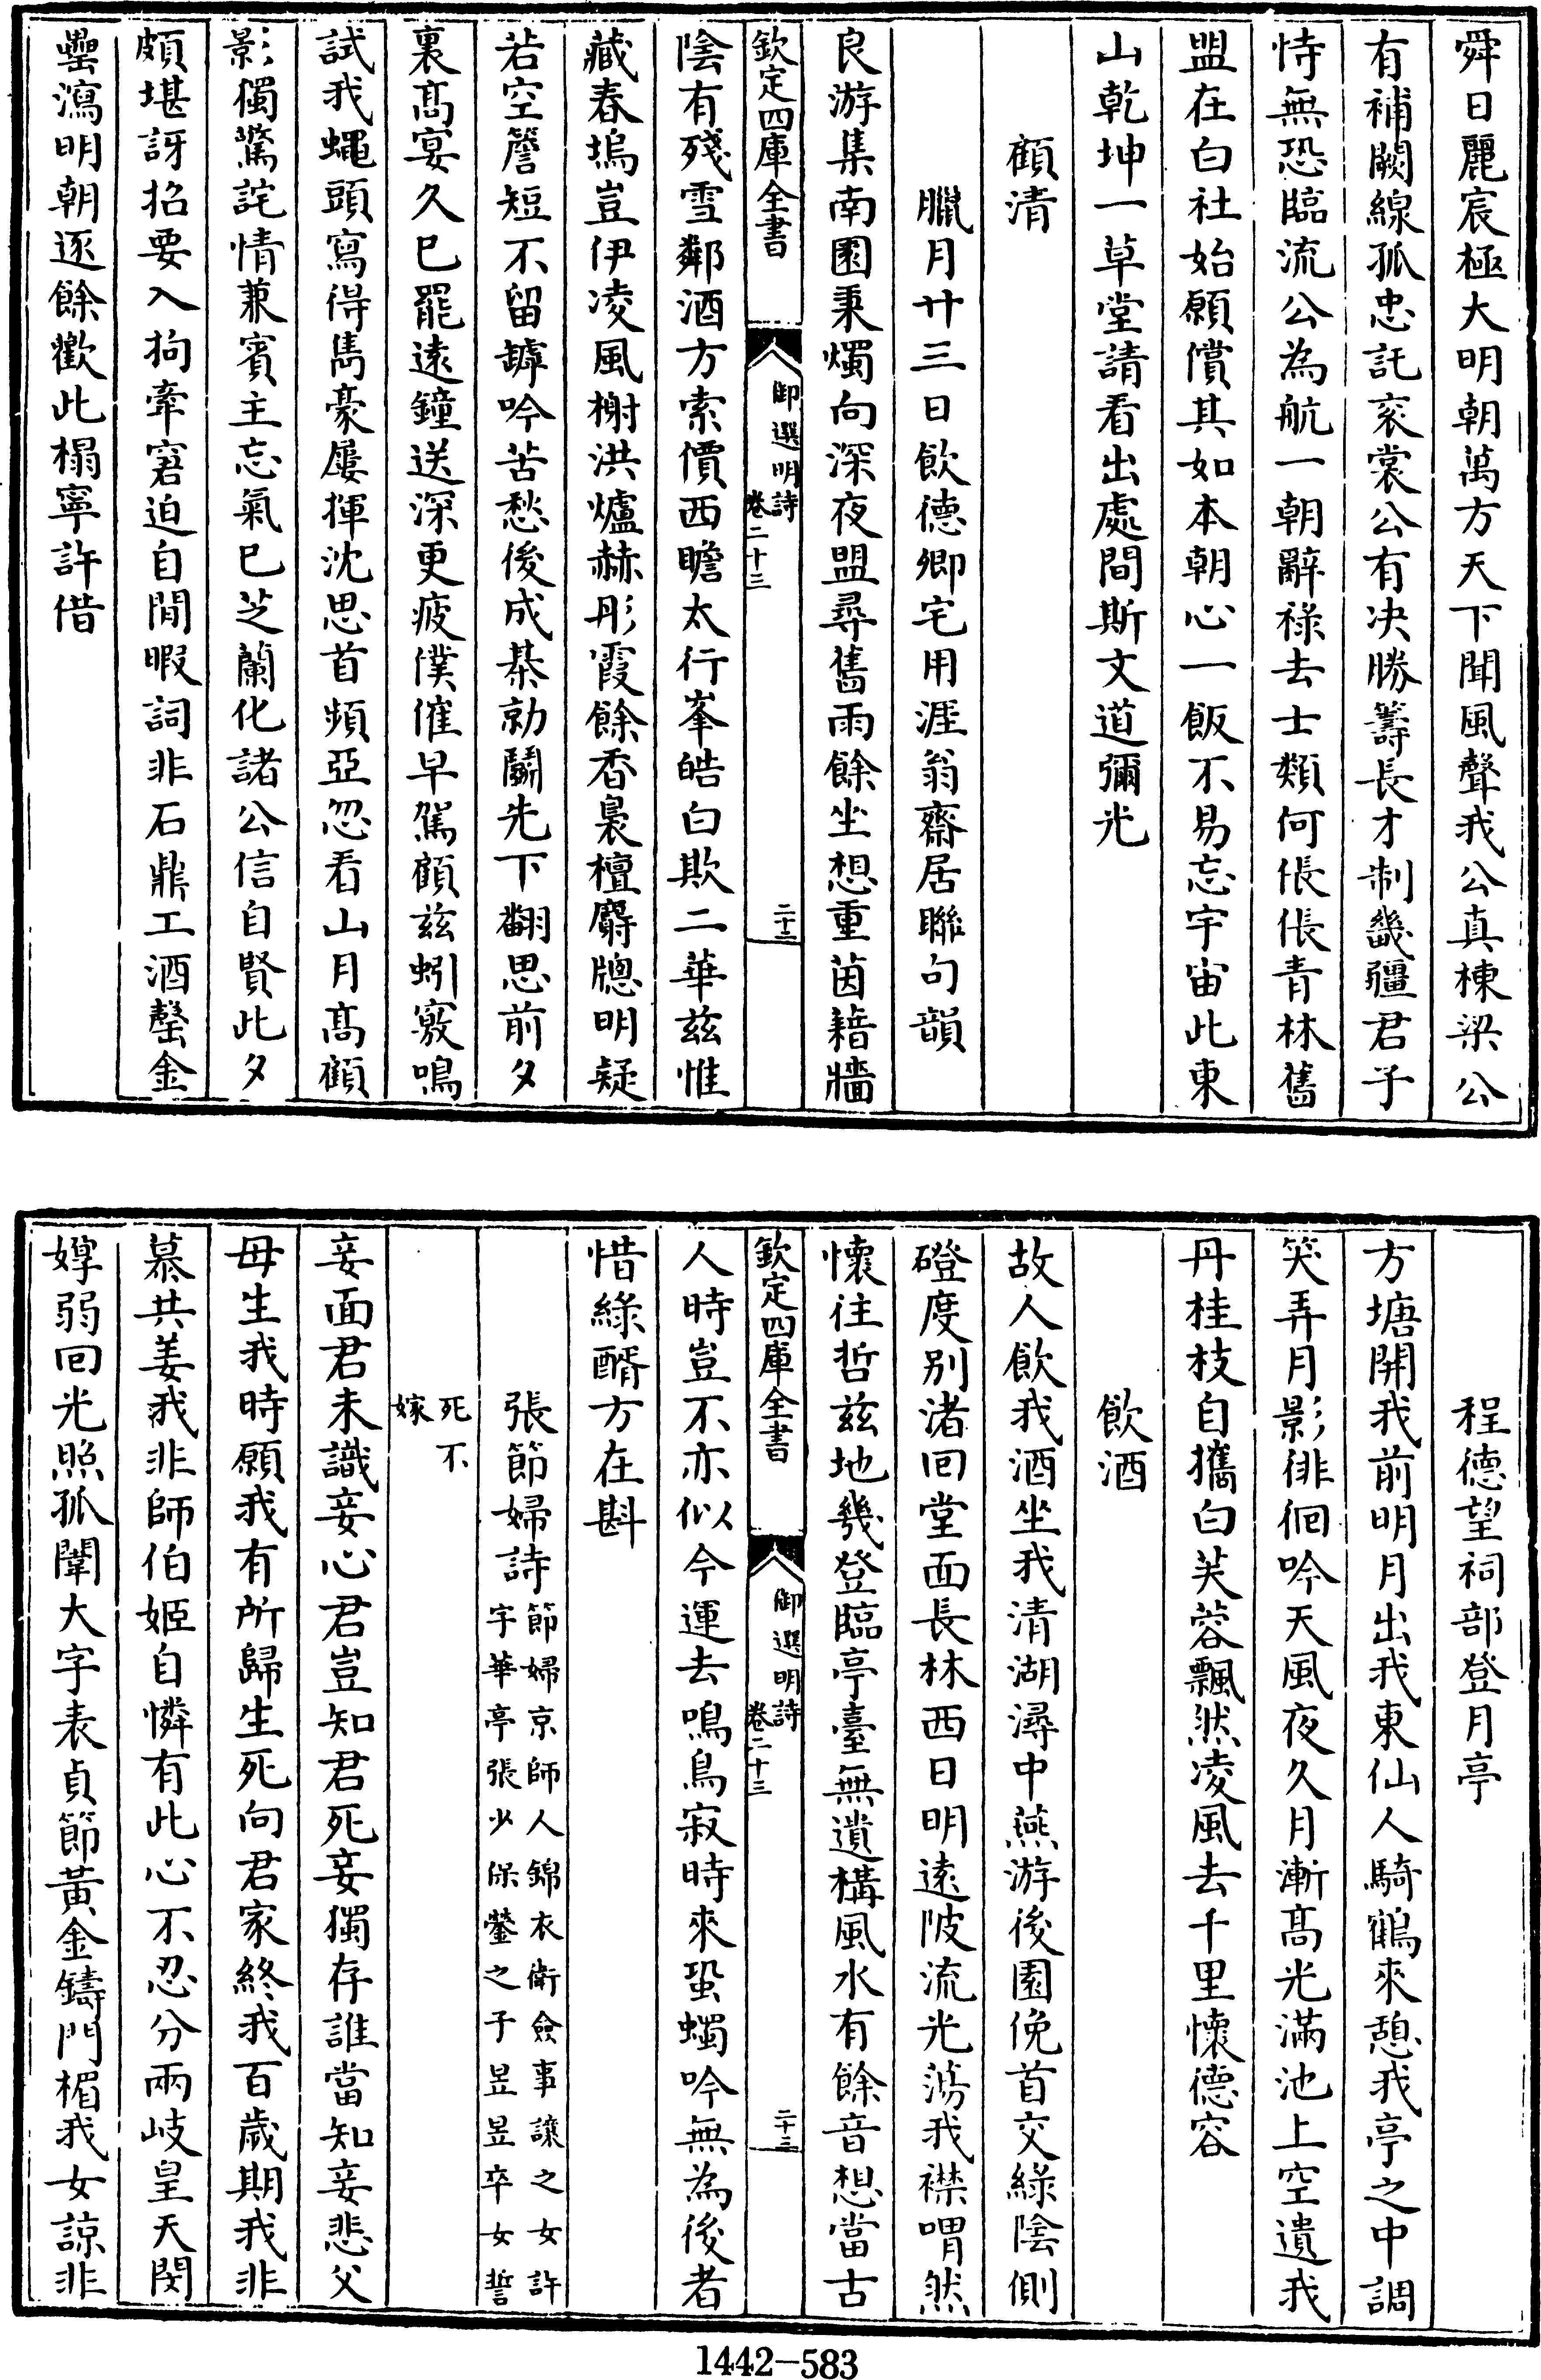 舜日麗宸極大明朝萬方天下聞風聲我公真棟梁公
有補闕線孤忠託衮裳公有决勝籌長才制畿疆君子
恃無恐臨流公為航一朝辭祿去士類何倀倀青林舊
盟在白社始願償其如本朝心一飯不易忘宇宙此東
山乾坤一草堂請看出處間斯文道彌光
顧清
臘月廿三日飲德卿宅用涯翁齋居聯句韻
良游集南園秉燭向深夜盟尋舊雨餘坐想重茵藉牆
欽定四庫全書
御選明詩
卷二十三
二十二
陰有殘雪鄰酒方索價西瞻太行峯皓白欺二華茲惟
藏春塢豈伊凌風榭洪爐赫彤霞餘香裊檀麝牕明疑
若空簷短不留罅吟苦愁後成棊勍鬭先下翻思前夕
裏髙宴久已罷遠鐘送深更疲僕催早駕顧茲蚓竅鳴
試我蠅頭寫得雋豪屢揮沈思首頻亞忽看山月髙顧
影獨驚詫情兼賓主忘氣已芝蘭化諸公信自賢此夕
頗堪訝招要入拘牽窘迫自閒暇詞非石鼎工酒罄金
罍瀉明朝逐餘歡此榻寧許借
程德望祠部登月亭
方塘開我前明月出我東仙人騎鶴來憩我亭之中調
笑弄月影徘徊吟天風夜久月漸髙光滿池上空遺我
丹桂枝自攜白芙蓉飄然凌風去千里懷德容
飲酒
故人飲我酒坐我清湖潯中燕游後園俛首交綠陰側
磴度别渚回堂面長林西日明遠陂流光蕩我襟喟然
懷往哲茲地幾登臨亭臺無遺構風水有餘音想當古
欽定四庫全書
御選明詩
卷二十三
二十三
人時豈不亦似今運去鳴鳥寂時來蛩蠋吟無為後者
惜綠醑方在斟
張節婦詩
節婦京師人錦衣衛僉事讓之女許
字華亭張少保鎣之子昱昱卒女誓
死不
嫁
妾面君未識妾心君豈知君死妾獨存誰當知妾悲父
母生我時願我有所歸生死向君家終我百歲期我非
慕共姜我非師伯姬自憐有此心不忍分兩岐皇天閔
婷弱回光照孤闈大字表貞節黃金鑄門楣我女諒非
1442-583